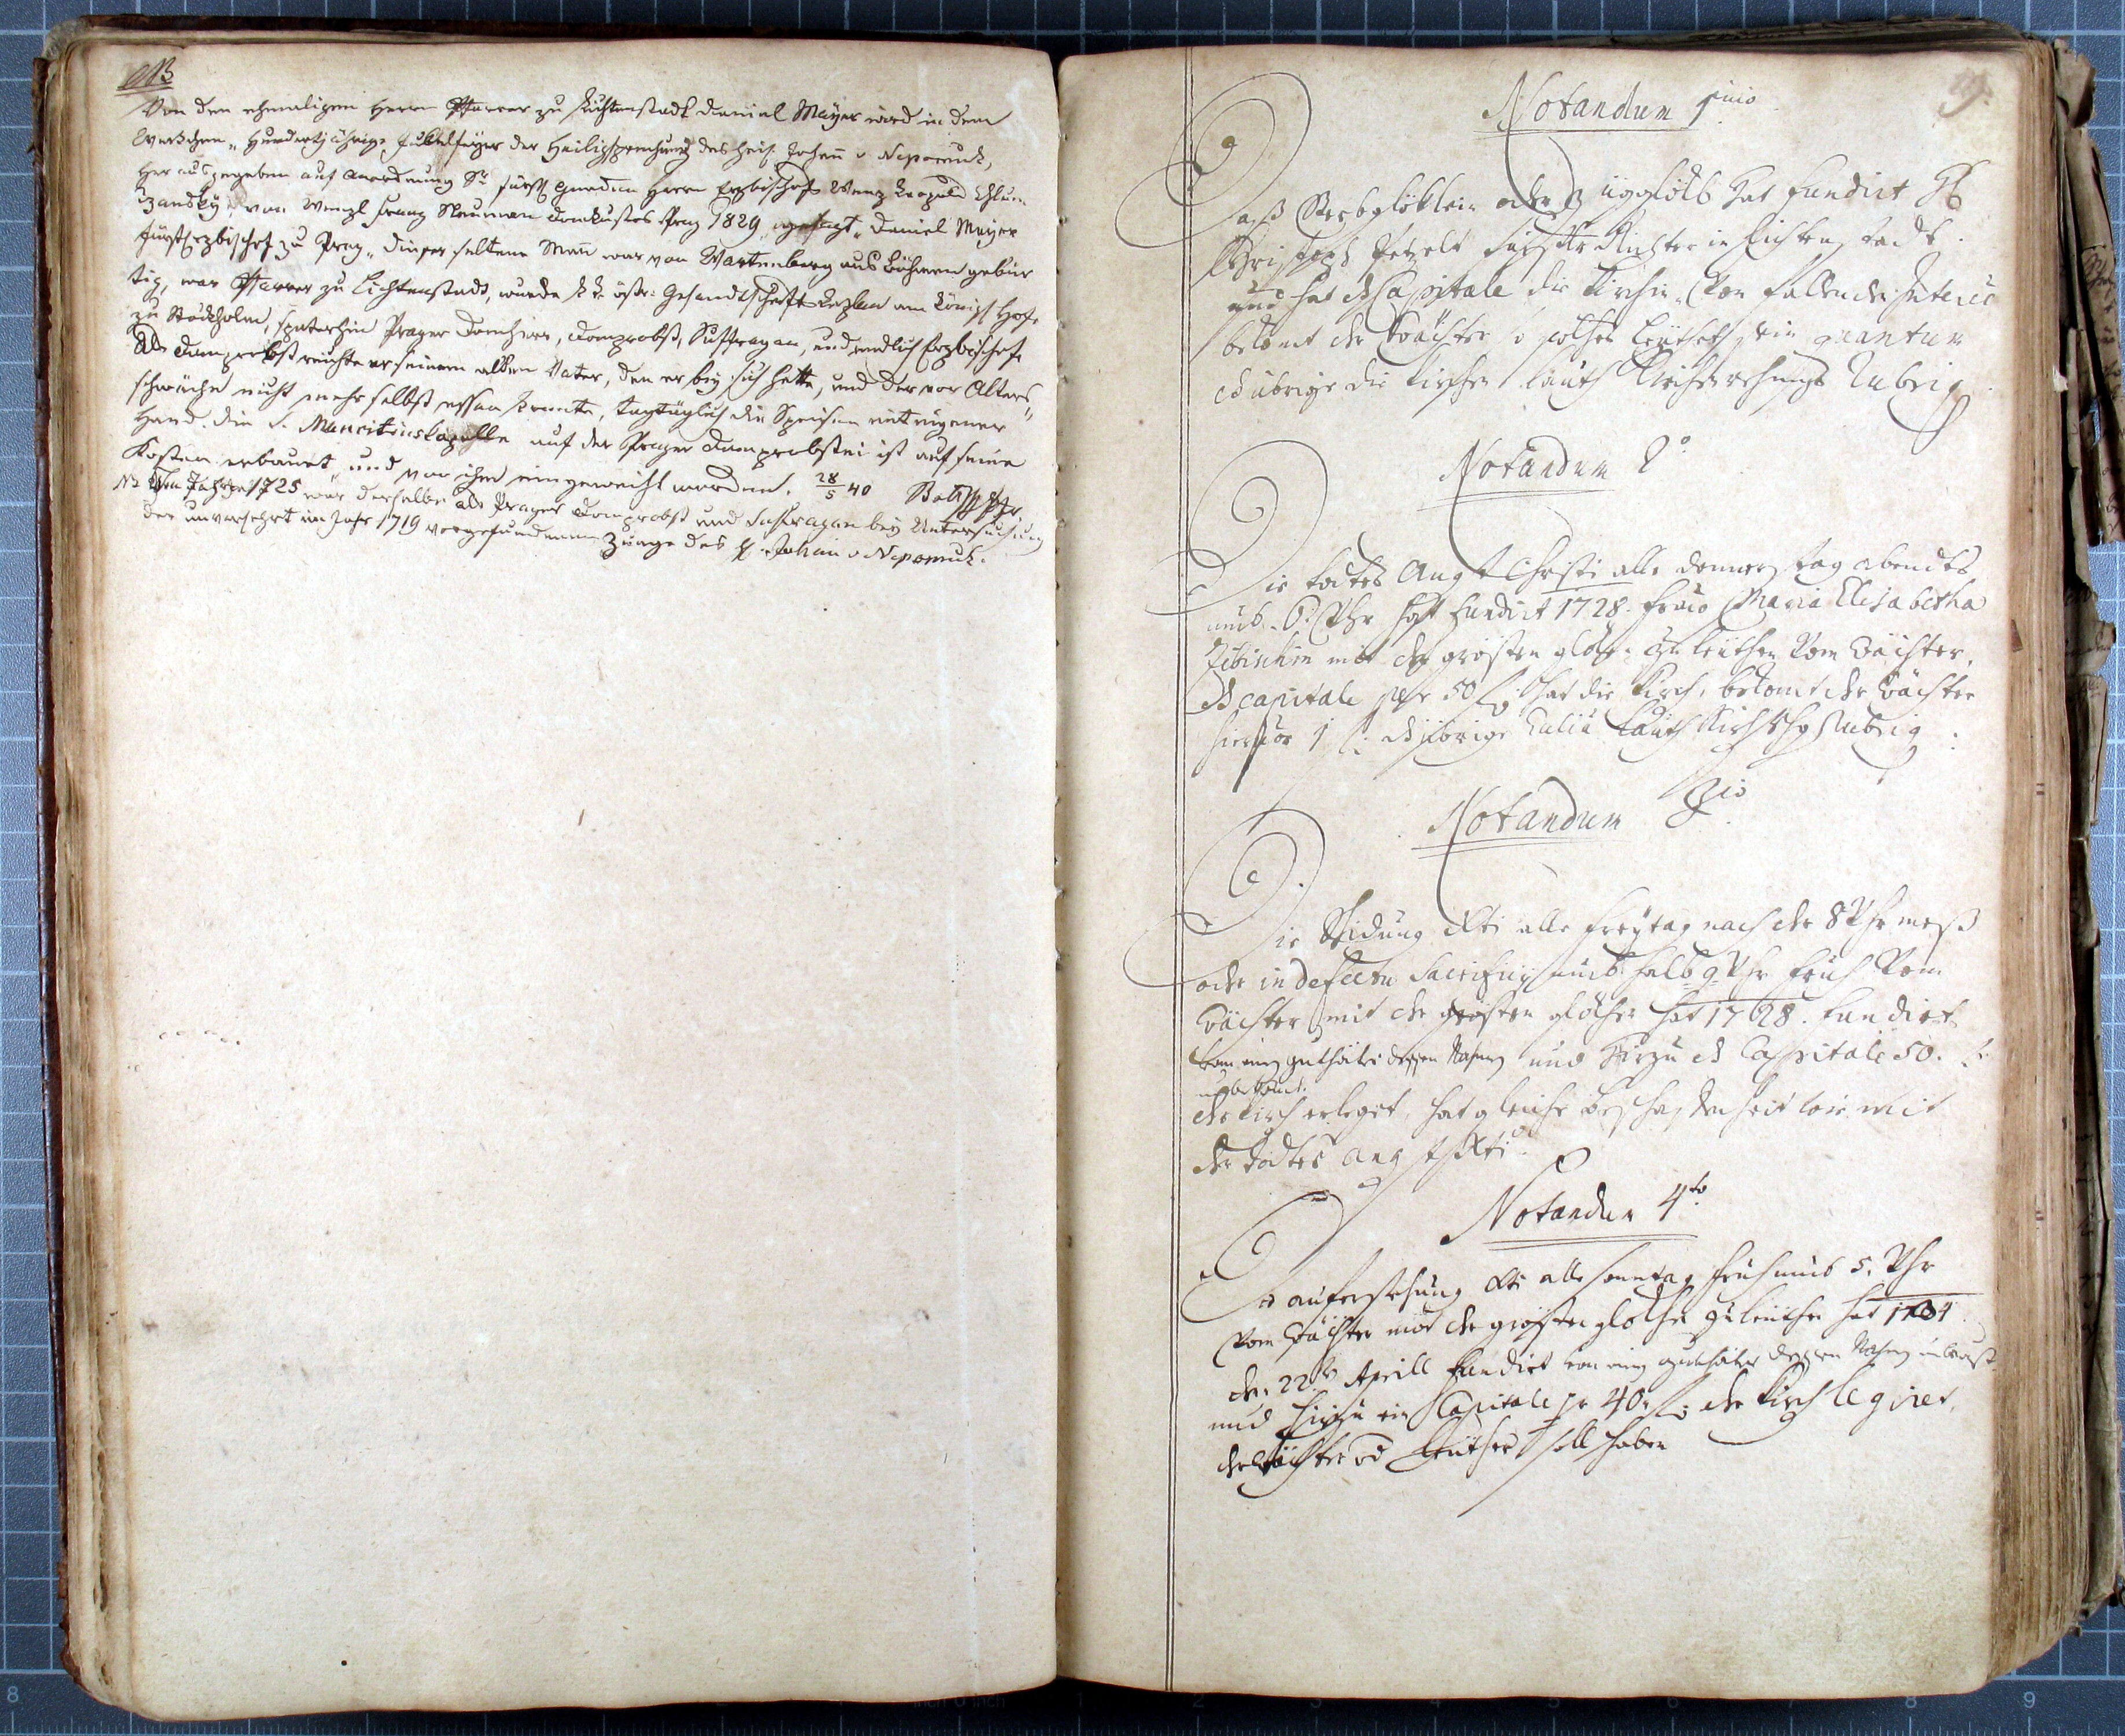 NB
Von dem ehemaligen Herrn Pfarrer zu Lichtenstadt Daniel Mayer wird in dem
Werkchen „Hundertjährige Jubelfeyer der Heiligsprechung des heil. Johann v Nepomuck,
herausgegeben auf Anordnung Sr fürstl Gnaden Herrn Erzbischofs Wenz Leopold Chlum
tzansky“ von Wenzl Franz Neuman Domkustos Prag 1829, gesagt „Daniel Mayer
Fürst Erzbischof zu Prag, dieser seltene Mann war von Wartenberg aus Böhmen gebür
tig, war Pfarrer zu Lichtenstadt, wurde k k östr. Gesandtschafts Kaplan am königl Hofe
zu Stockholm, spaterhin Prager Domherr, Domprobst, Suffragan, und endlich Erzbischof.
Als Domprobst reichte er seinem alten Vater, den er bey sich hatte, und der vor Alters
schwäche nicht mehr selbst essen konnte, tagtäglich die Speisen mit eigener
Hand. Die S. Mauritiuskapelle auf der Prager Domprobstei ist auf seine
Kosten erbauet, und von ihm eingeweiht worden. 28/5 40
NB Im Jahre 1725 war derselbe als Prager Domprobst und Suffragan bey Untersuchung
der unversehrt im Jahr 1719 vorgefundenen Zunge des H. Johann v Nepomuk.
19.
Notandum 1mo
Daß Sterbglöklein oder Zügglökl hat fundirt H
Christoph Kaysl Richter in Lichtenstadt.
und hat Capitale die Kirchen, Von fallende Interes
bekomt der Wächter v solches leüthet, ein quantum
übrige die Kirchen lauth Kirchrechnungs Rubrig
Notandum 2o
Die todtes Angst Christi alle donnerstag abendts
umb 6. Uhr hat fundirt 1728. Frau Maria Elisabetha
mit der grösten glok: zu leüthen Vom Wächter,
capitale per 50 f hat die Kirch, bekomt der Wächter
hiervor 1 f. übrige lauth Kirch Rubrig
Notandum 3tio
Die Schidung Xti alle freÿtag nach der 8 Uhr meß
oder in defectu Sacrificij umb halb 9 Uhr fruh Vom
Wächter mit der grösten glokhen hat 1728. fundirt
von ein guthäter dessen Nahmen und hierzu Capitale 50. f.
unbekant.
der Kirch erleget, hat gleiche beschaffenheit wie mit
der todtes angst Xti.
Notandum 4to
Die auferstehung Xti alle sonntag fruh umb 5. Uhr
Vom Wächter mit der grösten glokhen zu leüthen hat 1734
den 22 Aprill fundirt von ein guthäter dessen Nahmen
und hirzu ein Capitale pr 40. f: der Kirch legiret,
der Wächter leüthen soll haben